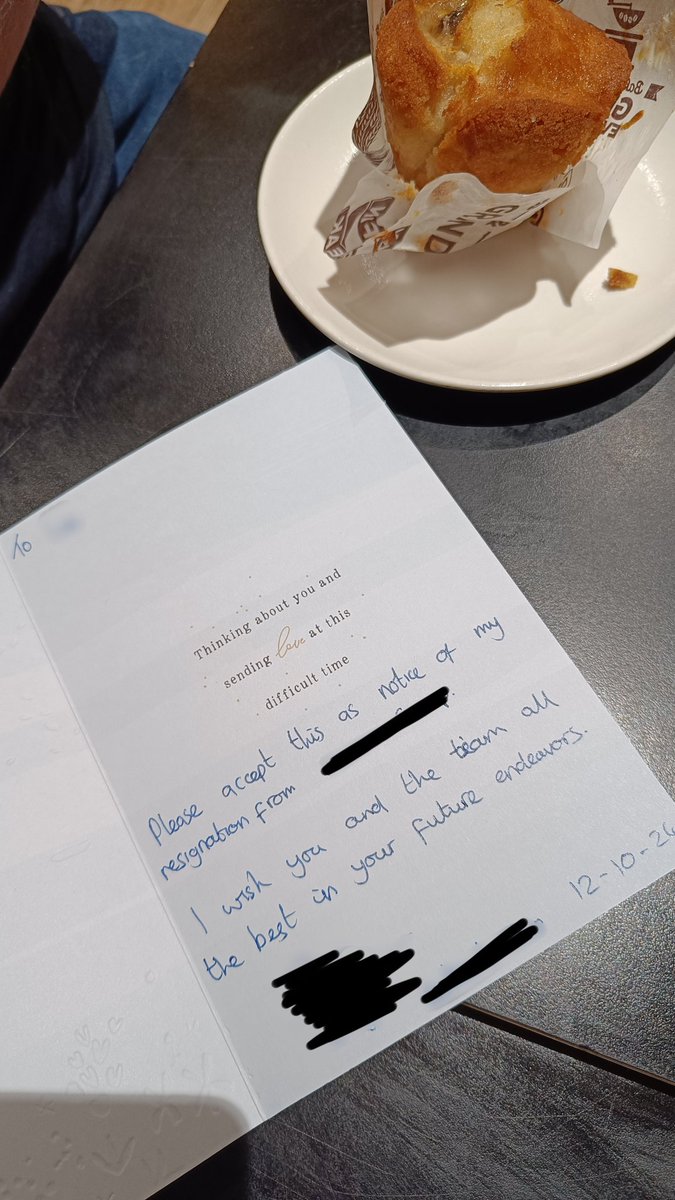 To
Thinking about you and
sending love at this
difficult time
Please accept this as notice of my
resignation from
I wish you and the team all
the best in your future endeavors.
12-10-24